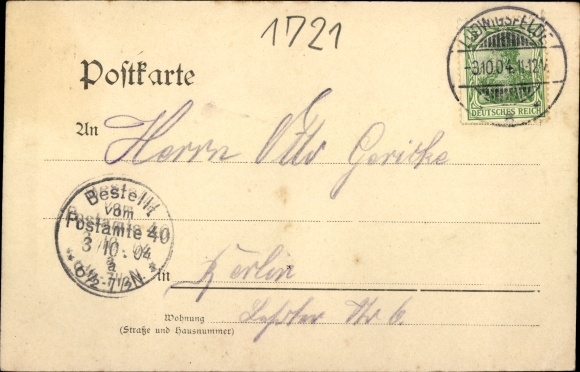 1721
LUDWIGSFELDE
-3.10.04.11-12V.
DEUTSCHES REICH
Postkarte
An
Herrn Otto Gericke
Bestellt
vom
Postamte 40
3 10. 04
6½-7½N.
in
Berlin
Wohnung
(Straße und Hausnummer)
Str. 6.